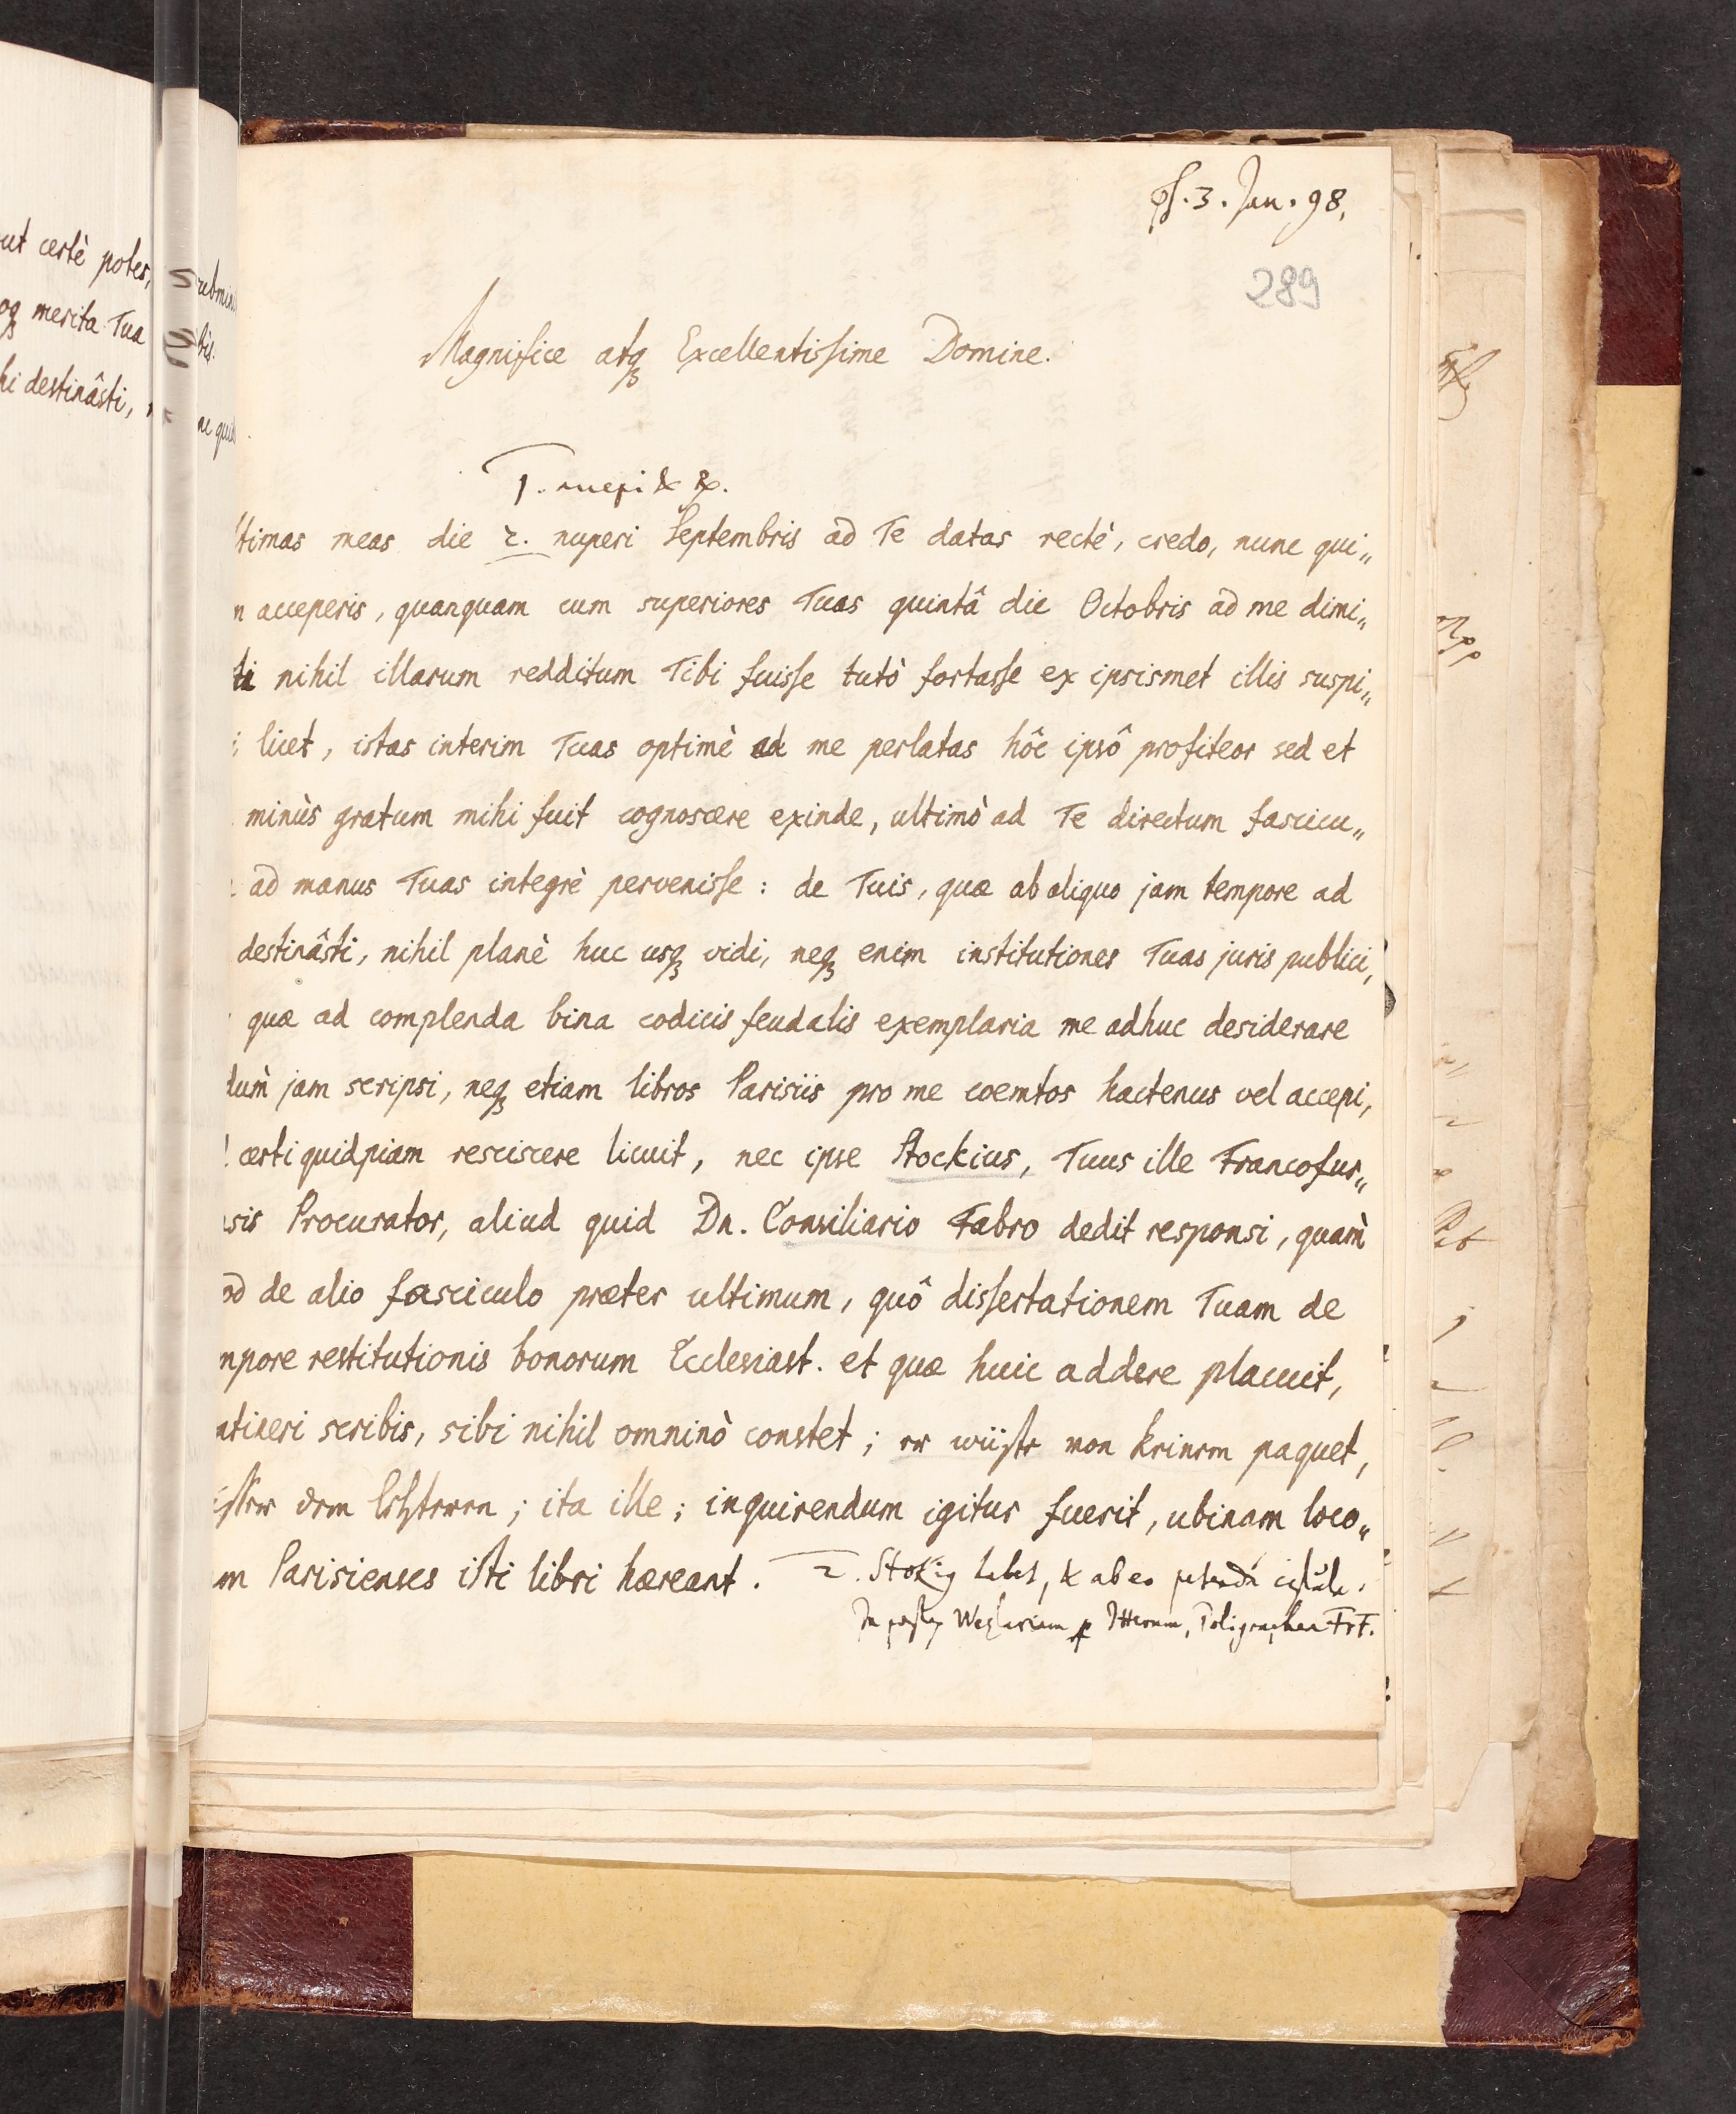 ut certè potes,
merita Tua
hi destinâsti,
3. Jan. 98.
289
Magnifice atq Excellentissime Domine.
timas meas die 2. nuperi Septembris ad Te datas rectè, credo, nunc qui„
n acceperis, quanquam cum superiores Tuas quintâ die Octobris ad me dimi„
ti nihil illarum redditum Tibi fuisse tutò fortasse ex ipsismet illis suspi„
licet, istas interim Tuas optimè ad me perlatas hôc ipsô profiteor sed et
minùs gratum mihi fuit cognoscere exinde, ultimò ad Te directum fascicu„
ad manus Tuas integrè pervenisse : de Tuis, quæ ab aliquo jam tempore ad
destinâsti, nihil planè huc usq vidi, neq enim institutiones Tuas juris publici,
quæ ad complenda bina codicis feudalis exemplaria me adhuc desiderare
dum jam scripsi, neq etiam libros Parisiis pro me coemtos hactenus vel accepi,
certi quidpiam resciscere licuit, nec ipse Stockius, Tuus ille Francofur„
sis Procurator, aliud quid Dn. Consiliario Fabro dedit responsi, quam
od de alio fasciculo præter ultimum, quô dissertationem Tuam de
mpore restitutionis bonorum Ecclesiast. et quæ huic addere placuit,
ntineri scribis, sibi nihil omninò constet ; er wüste von keinem paquet,
sser dem letzteren ; ita ille ; inquirendum igitur fuerit, ubinam loco„
m Parisienses isti libri hæreant. 2. Stokig habet, & ab eo
Wezlariam